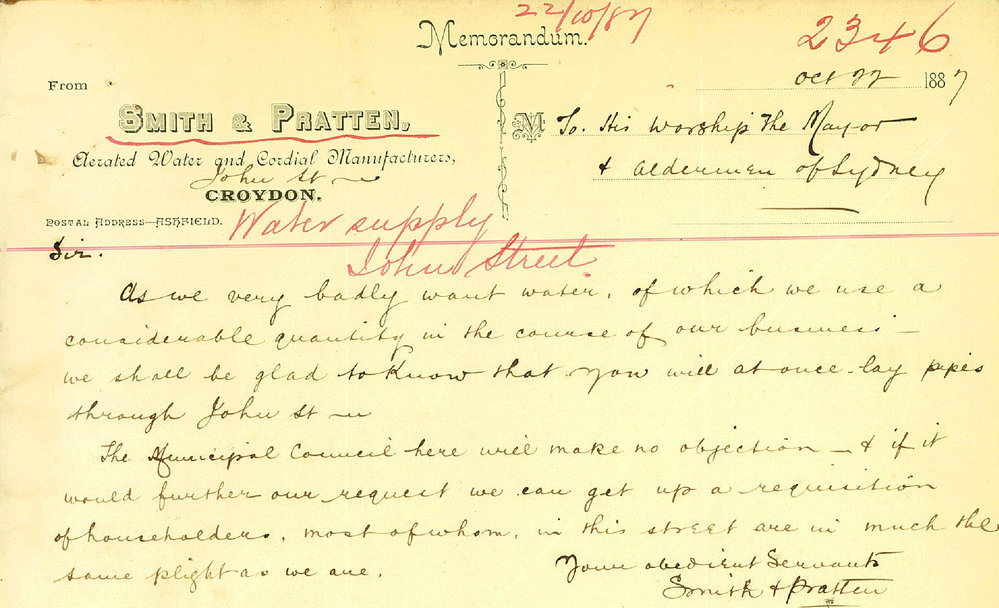 22/10/87
Memorandum.
2346
Oct 22 1887
From
SMITH & PRATTEN,
Aerated Water and Cordial Manufacturers,
John St
CROYDON.
POSTAL ADDRESS—ASHFIELD.
M To. His Worship The Mayor
& Aldermen of Sydney
Water supply
John Street
Sir.
As we very badly want water, of which we use a
considerable quantity in the course of our business –
we shall be glad to know that you will at once lay pipes
through John St
The Municipal Council here will make no objection – & if it
would further our request we can get up a requisition
of householders, most of whom, in this street are in much the
same plight as we are.
Your obedient Servants
Smith & Pratten